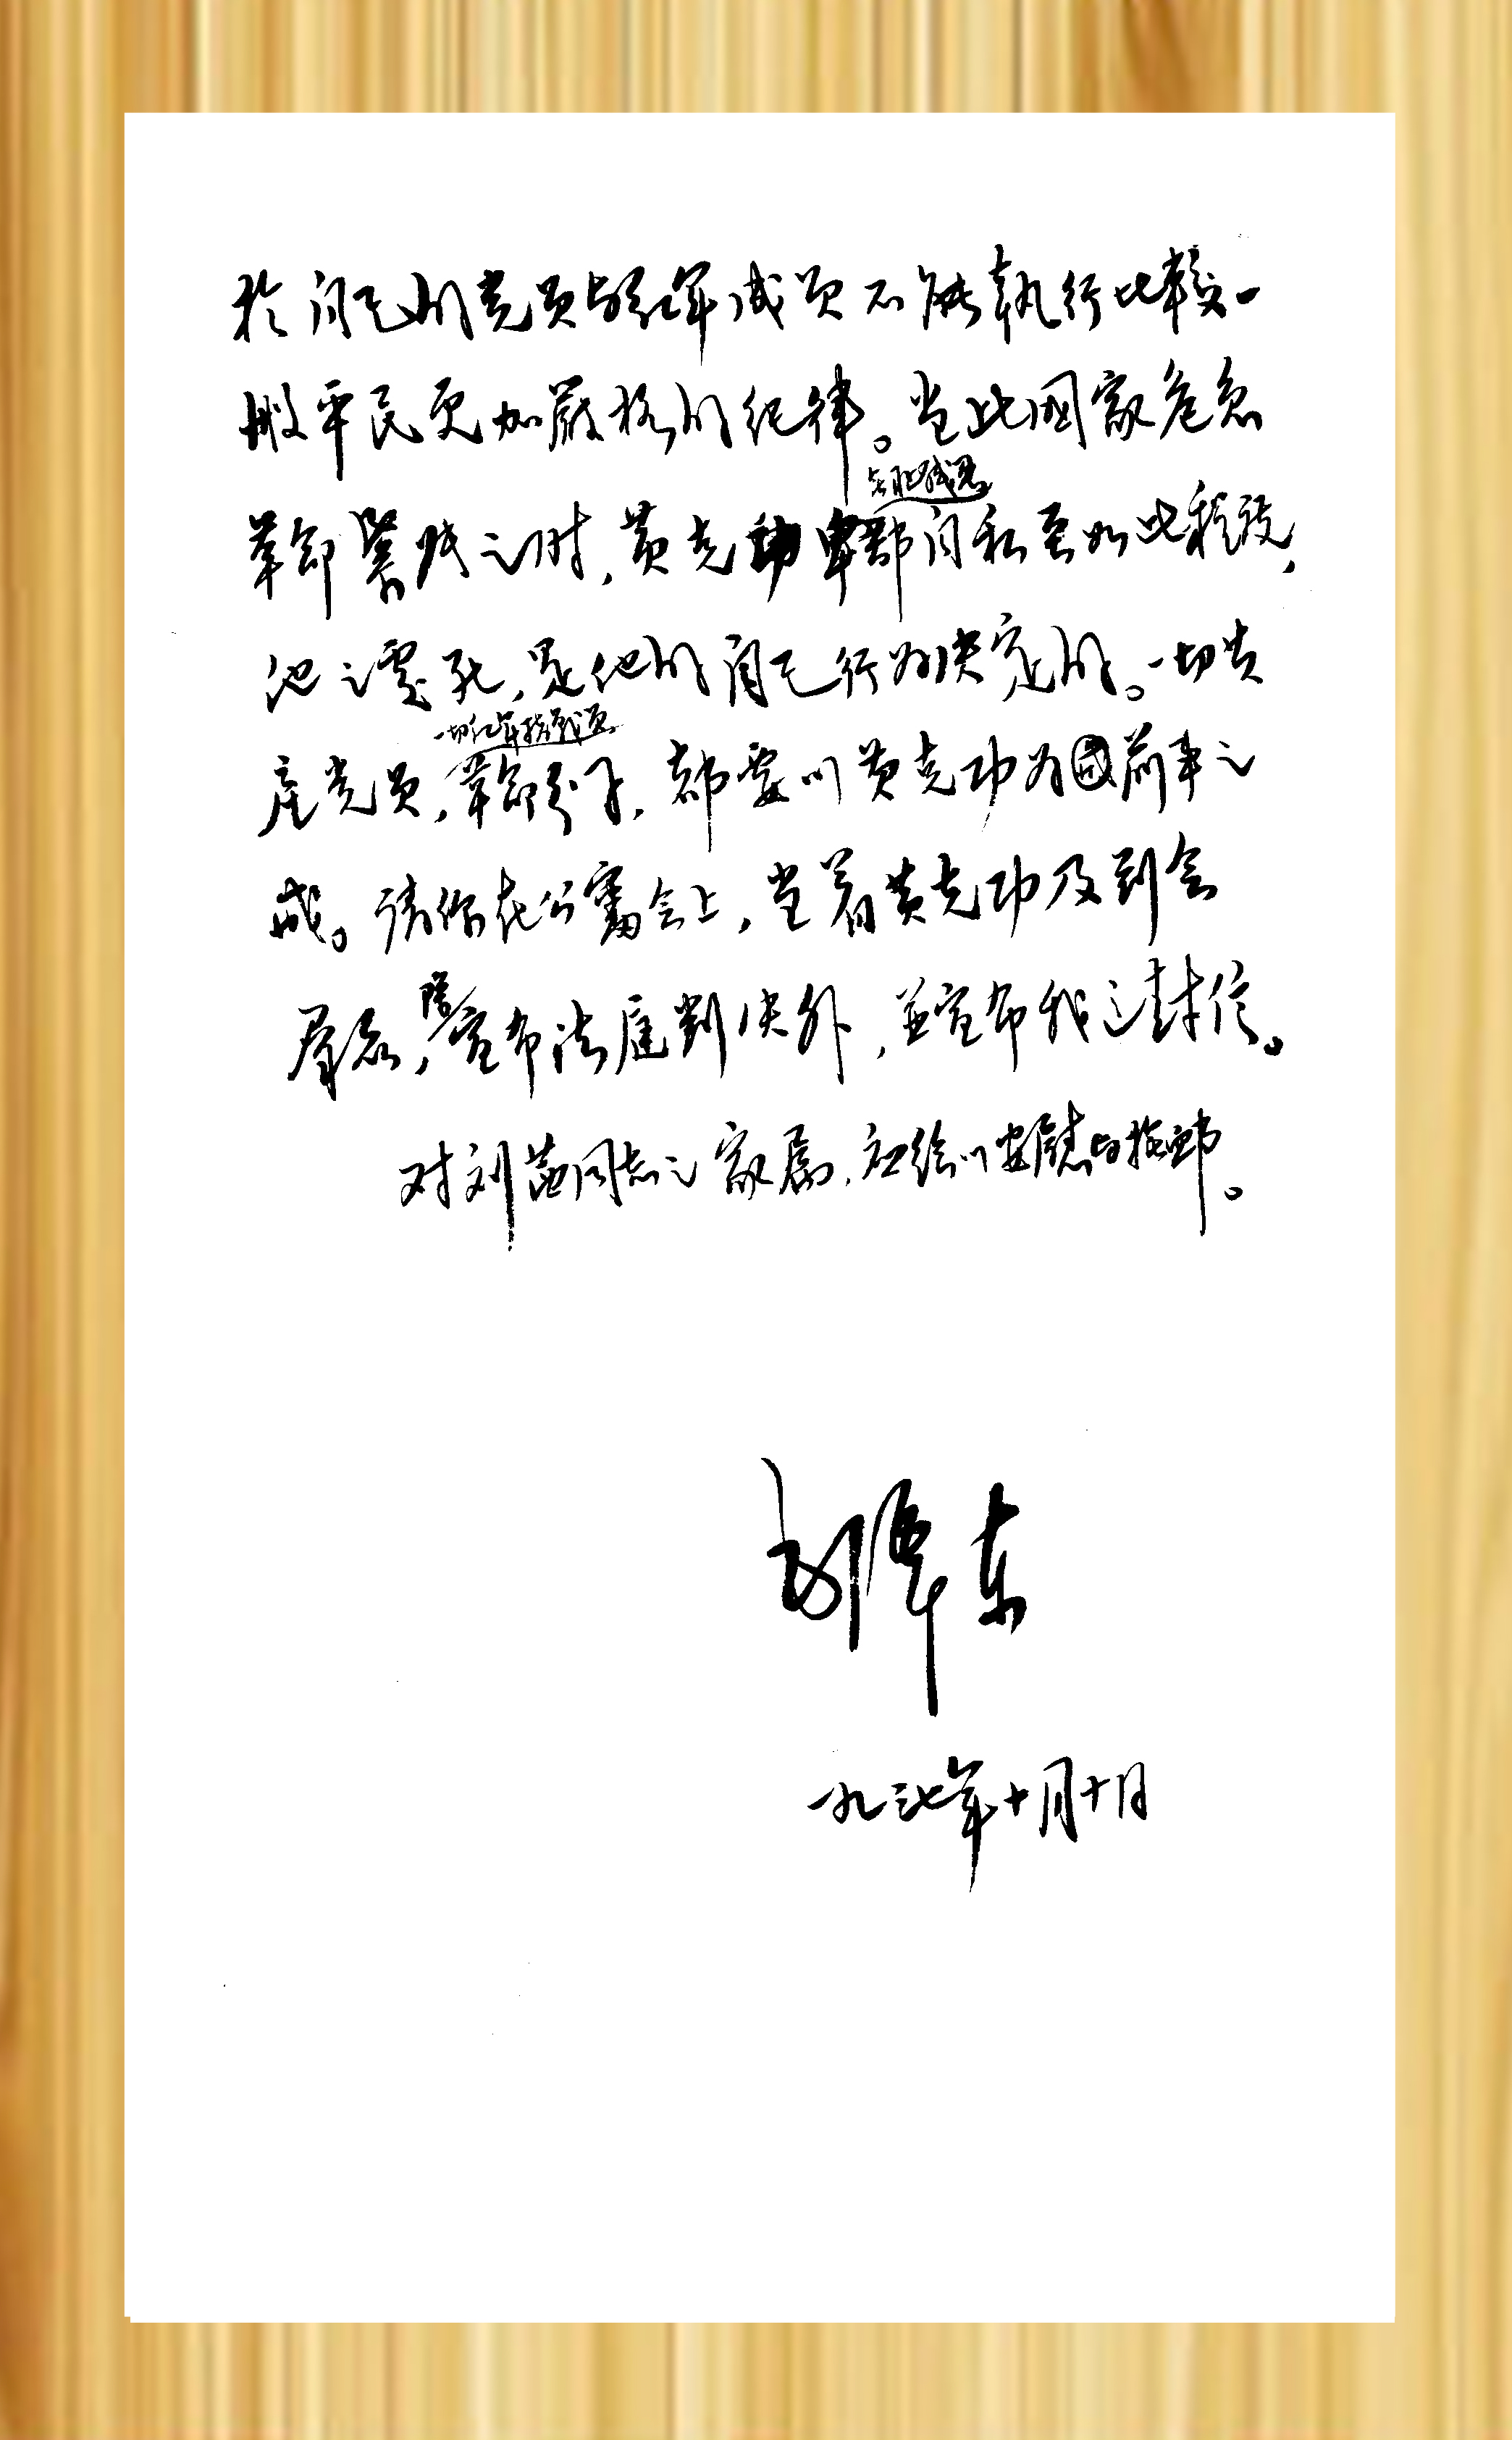 於自己的党员与红军成员不能執行比較一
般平民更加嚴格的纪律。当此國家危急
無恥残忍
革命緊张之时,黄克功卑鄙自私至如此程度,
他之處死,是他的自己行为决定的。一切共
一切红军指战员
产党员,革命分子,都要以黄克功为前車之
戒。请你在公審会上,当着黄克功及到会
羣众,除宣布法庭判决外,並宣布我这封信。
对刘茜同志之家属,应给以安慰与抚卹。
毛泽东
一九三七年十月十日